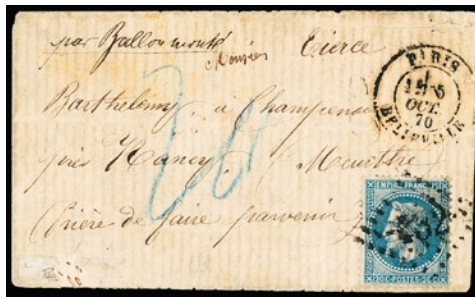 par Ballon monté
Monsieur
Tierce
Barthélemy à Champenoux
près Nancy Meurthe
Prière de faire parvenir
20
PARIS
5
OCT.
70
BELLEVILLE
EMPIRE FRANC
20C POSTES 20C